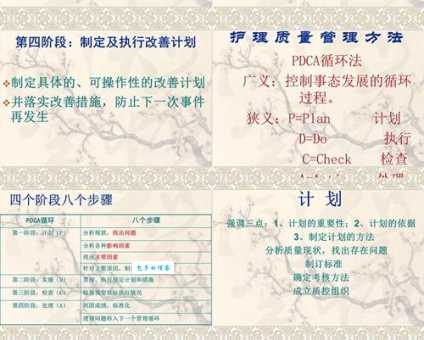 第四阶段：制定及执行改善计划
制定具体的、可操作性的改善计划
并落实改善措施，防止下一次事件
再发生
护理质量管理方法
PDCA循环法
广义：控制事态发展的循环
过程。
狭义：P=Plan 计划
D=Do 执行
C=Check 检查
四个阶段八个步骤
PDCA循环 八个步骤
第一阶段：计划（P） 分析现状，找出问题
分析各种影响因素
找出主要因素
针对主要原因，制
第二阶段：实施（D）
第三阶段：检查（C）
第四阶段：处理（A） 巩固成绩，标准化
遗留问题转入下一个管理循环
计 划
强调三点：1、计划的重要性；2、计划的依据
3、制定计划的方法
分析质量现状，找出存在问题
制订标准
确定考核方法
成立质控组织